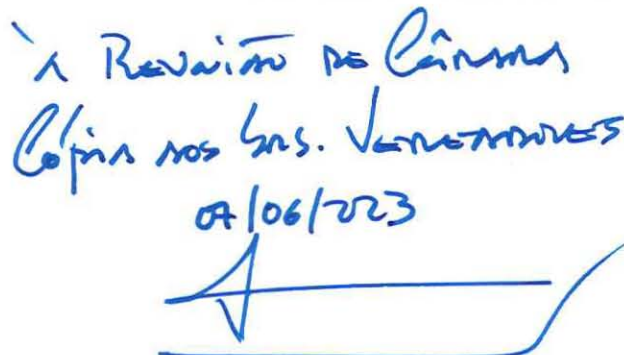 À Reunião de Câmara
Cópia aos Srs. Vereadores
07/06/2023